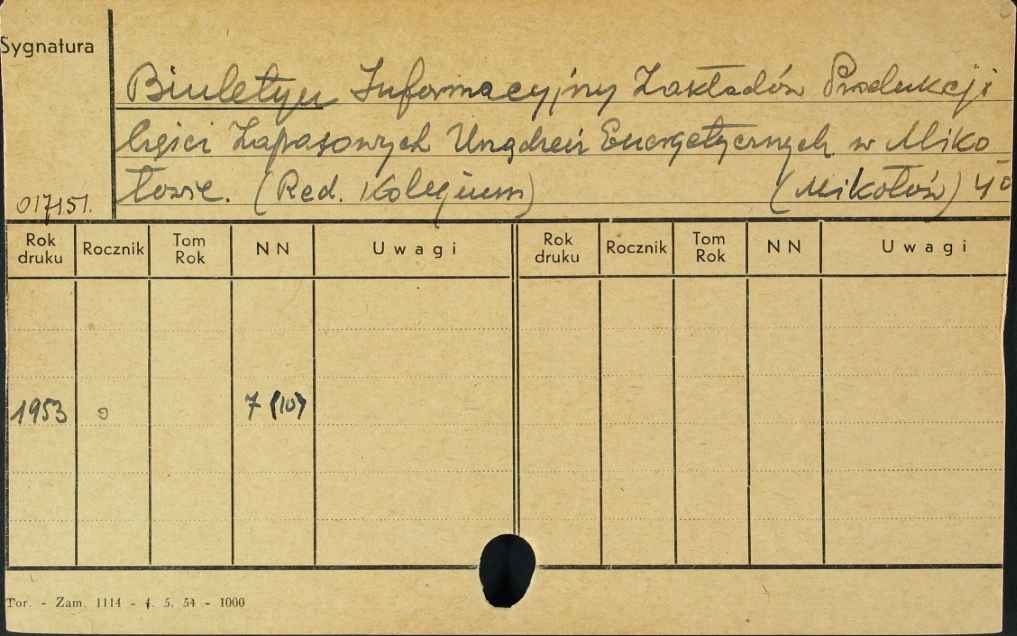 Sygnatura
Biuletyn Informacyjny Zakładów Produkcji
Części Zapasowych Urządzeń Energetycznych w Miko-
łowie. (Red. Kolegium) (Mikołów) 4°
017151.
Rok druku Rocznik Tom Rok NN Uwagi Rok druku Rocznik Tom Rok NN Uwagi
1953 0 7 (10)
Tor. - Zam. 1114 - 4. 5. 54 - 1000